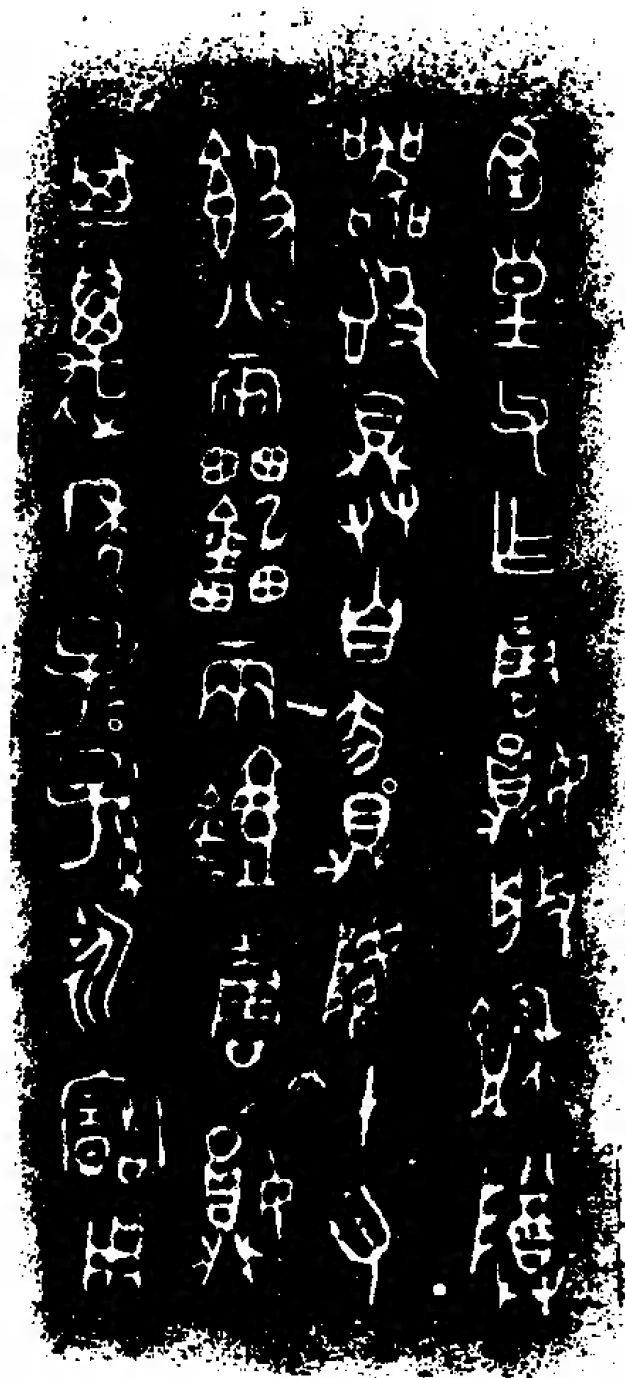 函皇父乍琱娟般盉尊
器𣪘具自豕鼎降十又
𣪘八兩罍兩壺琱娟
其萬年子子孫孫永寶用